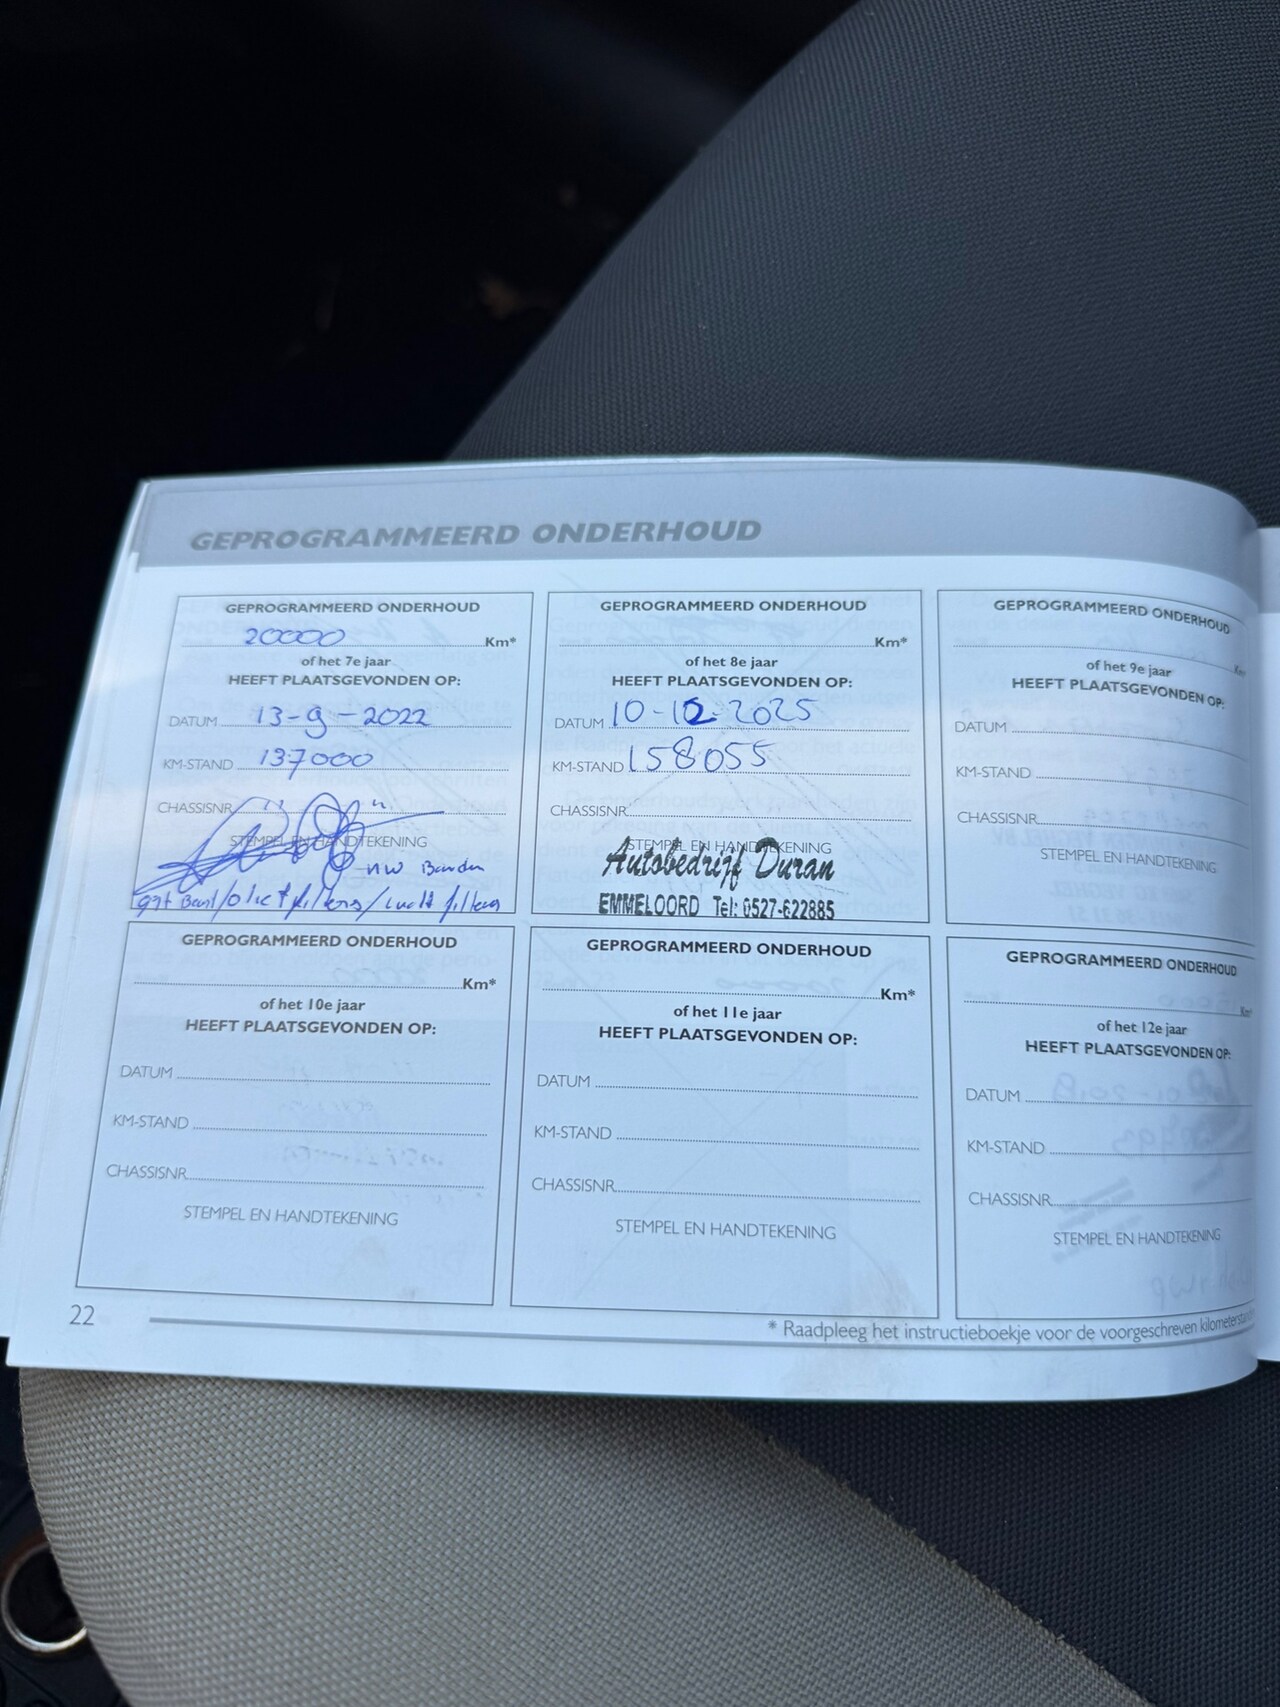 GEPROGRAMMEERD ONDERHOUD
GEPROGRAMMEERD ONDERHOUD
20000 Km*
of het 7e jaar
HEEFT PLAATSGEVONDEN OP:
DATUM 13-9-2022
KM-STAND 137000
CHASSISNR
STEMPEL EN HANDTEKENING
nw Banden
/olie+filters/lucht filters
GEPROGRAMMEERD ONDERHOUD
Km*
of het 8e jaar
HEEFT PLAATSGEVONDEN OP:
DATUM 10-12-2025
KM-STAND 158055
CHASSISNR
STEMPEL EN HANDTEKENING
Autobedrijf Duran
EMMELOORD Tel: 0527-622885
GEPROGRAMMEERD ONDERHOUD
Km
of het 9e jaar
HEEFT PLAATSGEVONDEN OP:
DATUM
KM-STAND
CHASSISNR
STEMPEL EN HANDTEKENING
GEPROGRAMMEERD ONDERHOUD
Km*
of het 10e jaar
HEEFT PLAATSGEVONDEN OP:
DATUM
KM-STAND
CHASSISNR
STEMPEL EN HANDTEKENING
GEPROGRAMMEERD ONDERHOUD
Km*
of het 11e jaar
HEEFT PLAATSGEVONDEN OP:
DATUM
KM-STAND
CHASSISNR
STEMPEL EN HANDTEKENING
GEPROGRAMMEERD ONDERHOUD
Km*
of het 12e jaar
HEEFT PLAATSGEVONDEN OP:
DATUM
KM-STAND
CHASSISNR
STEMPEL EN HANDTEKENING
22
* Raadpleeg het instructieboekje voor de voorgeschreven